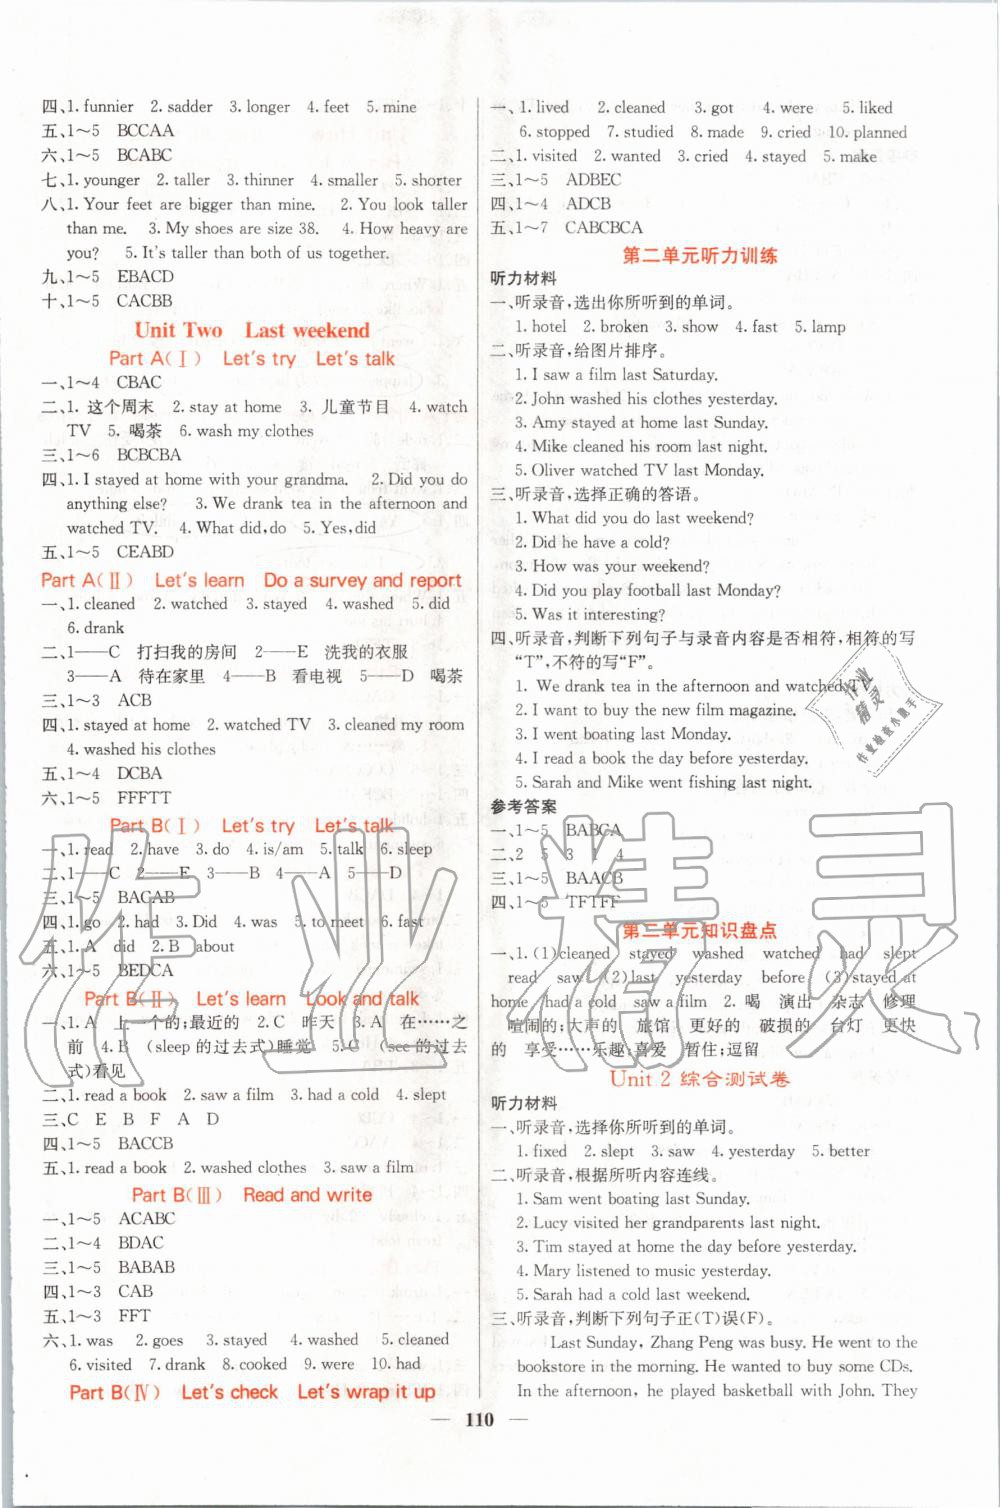 四、1. funnier 2. sadder 3. longer 4. feet 5. mine
五、1～5 BCCAA
六、1～5 BCABC
七、1. younger 2. taller 3. thinner 4. smaller 5. shorter
八、1. Your feet are bigger than mine. 2. You look taller
than me. 3. My shoes are size 38. 4. How heavy are
you? 5. It's taller than both of us together.
九、1～5 EBACD
十、1～5 CACBB
Unit Two Last weekend
Part A(Ⅰ) Let's try Let's talk
一、1～4 CBAC
二、1. 这个周末 2. stay at home 3. 儿童节目 4. watch
TV 5. 喝茶 6. wash my clothes
三、1～6 BCBCBA
四、1. I stayed at home with your grandma. 2. Did you do
anything else? 3. We drank tea in the afternoon and
watched TV. 4. What did,do 5. Yes,did
五、1～5 CEABD
Part A(Ⅱ) Let's learn Do a survey and report
一、1. cleaned 2. watched 3. stayed 4. washed 5. did
6. drank
二、1——C 打扫我的房间 2——E 洗我的衣服
3——A 待在家里 4——B 看电视 5——D 喝茶
三、1～3 ACB
四、1. stayed at home 2. watched TV 3. cleaned my room
4. washed his clothes
五、1～4 DCBA
六、1～5 FFFTT
Part B(Ⅰ) Let's try Let's talk
一、1. read 2. have 3. do 4. is/am 5. talk 6. sleep
二、1——C 2——E 3——B 4——A 5——D
三、1～5 BACAB
四、1. go 2. had 3. Did 4. was 5. to meet 6. fast
五、1. A did 2. B about
六、1～5 BEDCA
Part B(Ⅱ) Let's learn Look and talk
一、1. A 上一个的;最近的 2. C 昨天 3. A 在……之
前 4. B (sleep 的过去式)睡觉 5. C (see 的过去
式)看见
二、1. read a book 2. saw a film 3. had a cold 4. slept
三、C E B F A D
四、1～5 BACCB
五、1. read a book 2. washed clothes 3. saw a film
Part B(Ⅲ) Read and write
一、1～5 ACABC
二、1～4 BDAC
三、1～5 BABAB
四、1～3 CAB
五、1～3 FFT
六、1. was 2. goes 3. stayed 4. washed 5. cleaned
6. visited 7. drank 8. cooked 9. were 10. had
Part B(Ⅳ) Let's check Let's wrap it up
一、1. lived 2. cleaned 3. got 4. were 5. liked
6. stopped 7. studied 8. made 9. cried 10. planned
二、1. visited 2. wanted 3. cried 4. stayed 5. make
三、1～5 ADBEC
四、1～4 ADCB
五、1～7 CABCBCA
第二单元听力训练
听力材料
一、听录音,选出你所听到的单词。
1. hotel 2. broken 3. show 4. fast 5. lamp
二、听录音,给图片排序。
1. I saw a film last Saturday.
2. John washed his clothes yesterday.
3. Amy stayed at home last Sunday.
4. Mike cleaned his room last night.
5. Oliver watched TV last Monday.
三、听录音,选择正确的答语。
1. What did you do last weekend?
2. Did he have a cold?
3. How was your weekend?
4. Did you play football last Monday?
5. Was it interesting?
四、听录音,判断下列句子与录音内容是否相符,相符的写
“T”,不符的写“F”。
1. We drank tea in the afternoon and watched TV.
2. I want to buy the new film magazine.
3. I went boating last Monday.
4. I read a book the day before yesterday.
5. Sarah and Mike went fishing last night.
参考答案
一、1～5 BABCA
二、2 5 3 1 4
三、1～5 BAACB
四、1～5 TFTFF
第二单元知识盘点
一、1. (1)cleaned stayed washed watched had slept
read saw (2)last yesterday before (3)stayed at
home had a cold saw a film 2. 喝 演出 杂志 修理
喧闹的;大声的 旅馆 更好的 破损的 台灯 更快
的 享受……乐趣;喜爱 暂住;逗留
Unit 2 综合测试卷
听力材料
一、听录音,选择你所听到的单词。
1. fixed 2. slept 3. saw 4. yesterday 5. better
二、听录音,根据所听内容连线。
1. Sam went boating last Sunday.
2. Lucy visited her grandparents last night.
3. Tim stayed at home the day before yesterday.
4. Mary listened to music yesterday.
5. Sarah had a cold last weekend.
三、听录音,判断下列句子正(T)误(F)。
Last Sunday, Zhang Peng was busy. He went to the
bookstore in the morning. He wanted to buy some CDs.
In the afternoon, he played basketball with John. They
— 110 —
作业精灵
作业
精灵
作业检查小助手